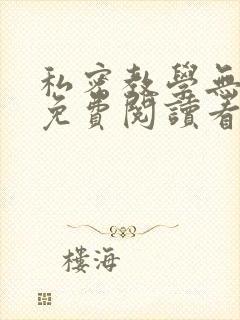 私密教學無
免費閱讀看
樓海